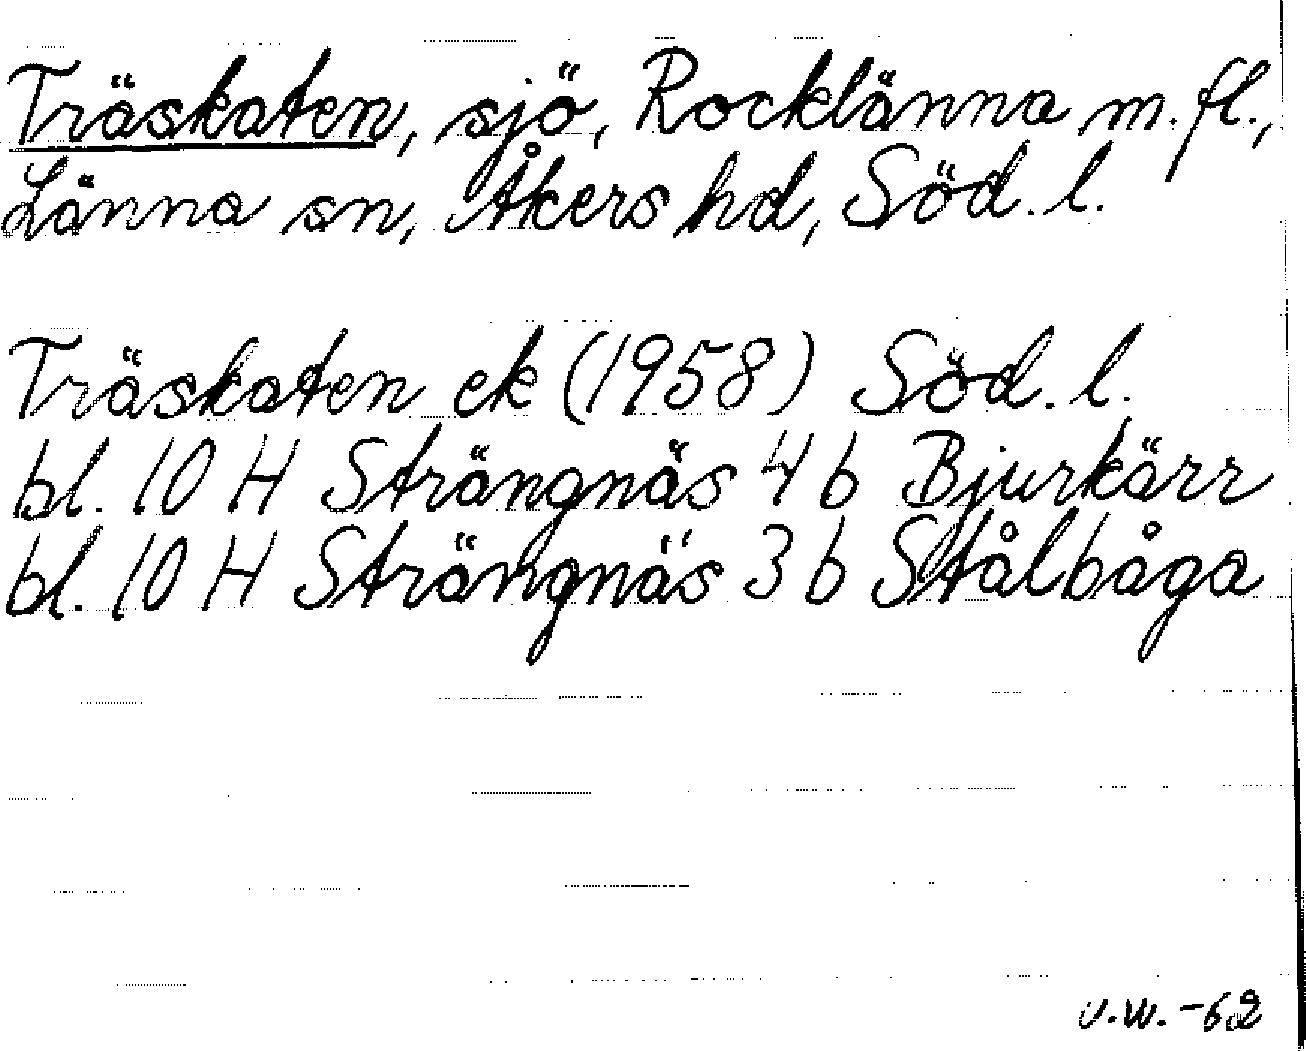 Träskaten, sjö, Rocklänna m.fl.,
Länna sn, Åkers hd, Söd. l.
Träskaten ek (1958) Söd. l.
bl. 10 H Strängnäs 4 b Bjurkärr
bl. 10 H Strängnäs 3 b Stålbåga
U.W. -62